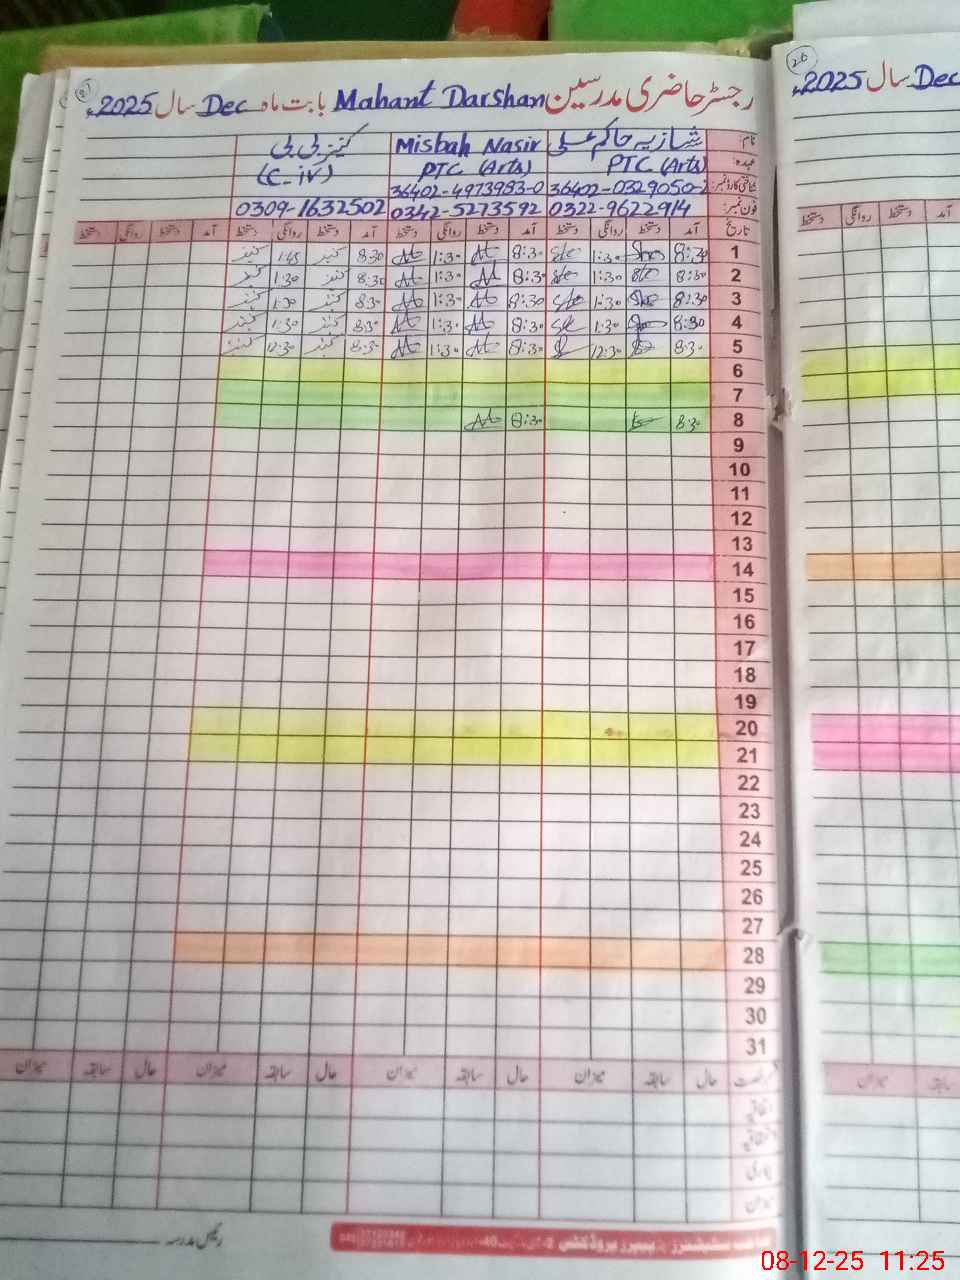 رجسٹر حاضری مدرسین Mahant Darshan بابت ماہ Dec سال 2025ء
21
نام: شازیہ حاکم علی Misbah Nasir کنیز بی بی
عہدہ: PTC (Arts) PTC (Arts) (C-iv)
شناختی کارڈ نمبر: 36402-0329050-2 36402-4973983-0
فون نمبر: 0322-9622914 0342-5273592 0309-1632502
تاریخ آمد دستخط روانگی دستخط آمد دستخط روانگی دستخط آمد دستخط روانگی دستخط آمد دستخط روانگی دستخط
1 8:30 1:30 8:30 1:30 8:30 کنیز 1:45 کنیز
2 8:30 1:30 8:30 1:30 8:30 کنیز 1:30 کنیز
3 8:30 1:30 8:30 1:30 8:30 کنیز 1:30 کنیز
4 8:30 1:30 8:30 1:30 8:30 کنیز 1:30 کنیز
5 8:30 12:30 8:30 1:30 8:30 کنیز 12:30 کنیز
6
7
8 8:30 8:30
9
10
11
12
13
14
15
16
17
18
19
20
21
22
23
24
25
26
27
28
29
30
31
حال سابقہ میزان حال سابقہ میزان حال سابقہ میزان حال سابقہ میزان
اتفاقیہ
میزان
رئیس مدرسہ
26
2025ء سال Dec
آمد دستخط روانگی دستخط
سابقہ میزان
08-12-25 11:25